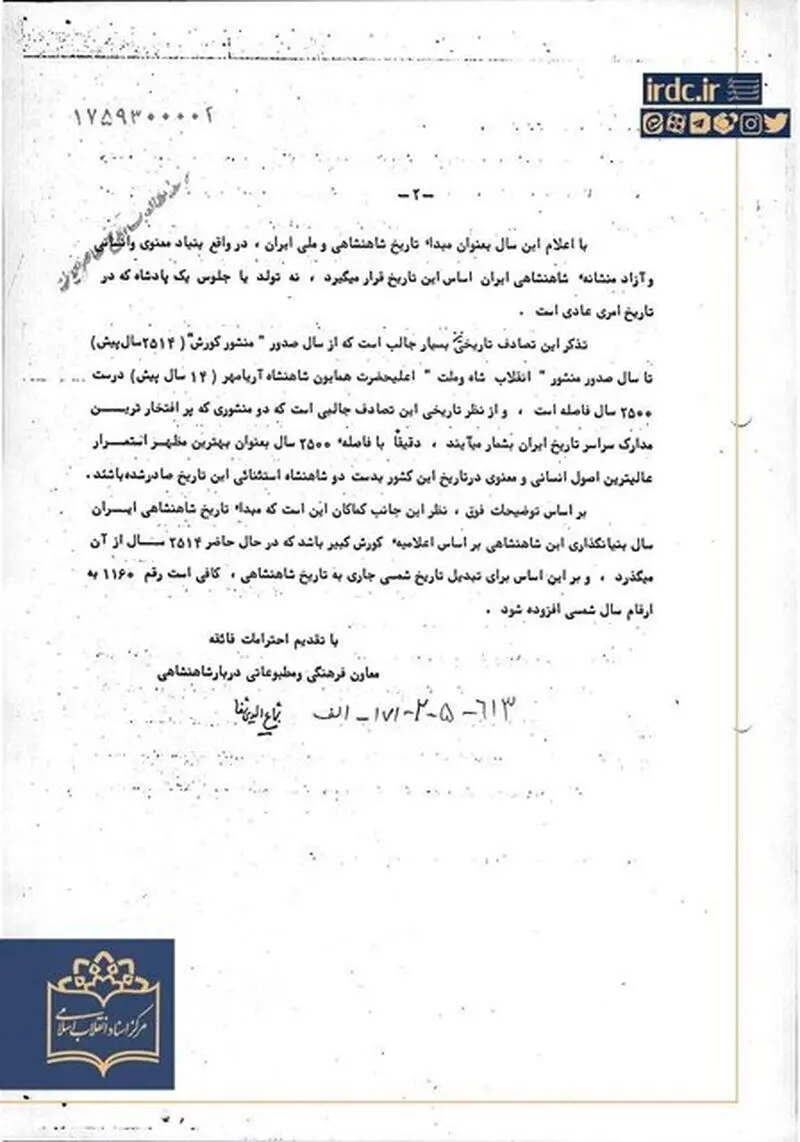 irdc.ir
۱۷۵۹۳۰۰۰۰۲
-۲-
با اعلام این سال بعنوان مبداء تاریخ شاهنشاهی و ملی ایران ، در واقع بنیاد معنوی وانسانی
و آزاد منشانهء شاهنشاهی ایران اساس این تاریخ قرار میگیرد ، نه تولد یا جلوس یک پادشاه که در
تاریخ امری عادی است .
تذکر این تصادف تاریخی نیز بسیار جالب است که از سال صدور " منشور کورش " ( ۲۵۱۴سال پیش)
تا سال صدور منشور " انقلاب شاه وملت " اعلیحضرت همایون شاهنشاه آریامهر ( ۱۴ سال پیش) درست
۲۵۰۰ سال فاصله است ، و از نظر تاریخی این تصادف جالبی است که دو منشوری که پر افتخار تریـــن
مدارک سراسر تاریخ ایران بشمار میآیند ، دقیقاً با فاصلهء ۲۵۰۰ سال بعنوان بهترین مظهـر استمـرار
عالیترین اصول انسانی و معنوی درتاریخ این کشور بدست دو شاهنشاه استثنائی این تاریخ صادرشده‌باشند .
بر اساس توضیحات فوق ، نظر این جانب کماکان این است که مبداء تاریخ شاهنشاهی ایـران
سال بنیانگذاری این شاهنشاهی بر اساس اعلامیهء کورش کبیر باشد که در حال حاضر ۲۵۱۴ ســـال از آن
میگذرد ، و بر این اساس برای تبدیل تاریخ شمسی جاری به تاریخ شاهنشاهی ، کافی است رقم ۱۱۶۰ به
ارقام سال شمسی افزوده شود .
با تقدیم احترامات فائقه
معاون فرهنگی ومطبوعاتی دربارشاهنشاهی
شجاع الدین شفا
۶۱۳-۵-۲-۱۷۱-الف
مرکز اسناد انقلاب اسلامی